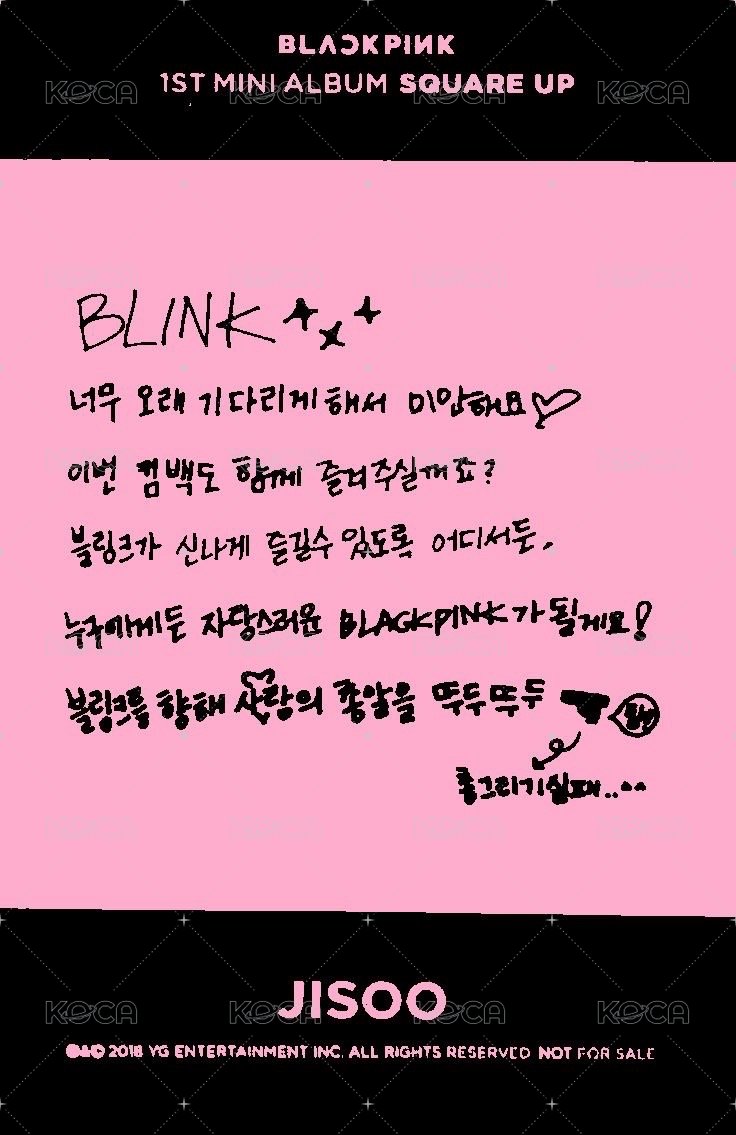 BLACKPINK
1ST MINI ALBUM SQUARE UP
BLINK
너무 오래 기다리게 해서 미안해요♡
이번 컴백도 함께 즐겨주실꺼죠?
블링크가 신나게 즐길수 있도록 어디서든,
누구에게든 자랑스러운 BLACKPINK가 될게요!
블링크를 향해 사랑의 총알을 뚜두뚜두
총그리기실패..^^
JISOO
℗&© 2018 YG ENTERTAINMENT INC. ALL RIGHTS RESERVED NOT FOR SALE
KOCA